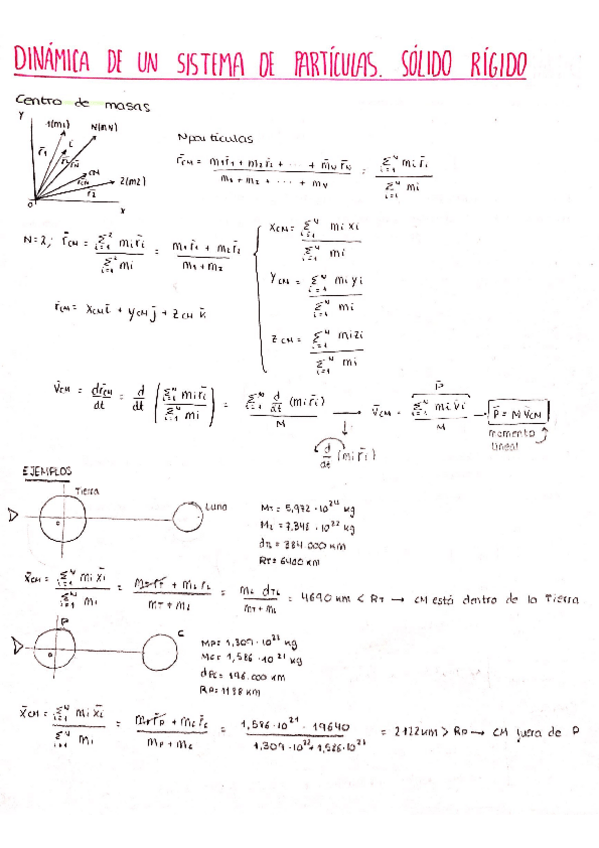 DINÁMICA DE UN SISTEMA DE PARTÍCULAS. SÓLIDO RÍGIDO
Centro de masas
Y
1(m1) N(mN)
r̄1 i r̄i r̄N
CM
r̄CM 2(m2)
r̄2
O x
N partículas
r̄CM = (m1r̄1 + m2r̄2 + ··· + mNr̄N) / (m1 + m2 + ··· + mN) = Σ(i=1)^N mi r̄i / Σ(i=1)^N mi
N=2; r̄CM = Σ(i=1)^2 mi r̄i / Σ(i=1)^2 mi = (m1r̄1 + m2r̄2) / (m1+m2)
XCM = Σ(i=1)^N mi xi / Σ(i=1)^N mi
YCM = Σ(i=1)^N mi yi / Σ(i=1)^N mi
ZCM = Σ(i=1)^N mi zi / Σ(i=1)^N mi
r̄CM = XCM ī + YCM j̄ + ZCM k̄
v̄CM = dr̄CM/dt = d/dt (Σ(i=1)^N mi r̄i / Σ(i=1)^N mi) = Σ(i=1)^N d/dt (mi r̄i) / M → v̄CM = Σ(i=1)^N mi v̄i / M → P̄ = M v̄CM
P̄
↓
d/dt (mi r̄i)
momento
lineal
EJEMPLOS
Tierra
Luna
O
MT = 5,972 · 10^24 kg
ML = 7,348 · 10^22 kg
dTL = 384.000 km
RT = 6400 km
x̄CM = Σ(i=1)^N mi x̄i / Σ(i=1)^N mi = (mT r̄T + mL r̄L) / (mT + mL) = mL dTL / (mT + mL) = 4690 km < RT → CM está dentro de la Tierra
P
C
O
MP = 1,309 · 10^22 kg
MC = 1,586 · 10^21 kg
dPC = 196.000 km
RP = 1188 km
x̄CM = Σ(i=1)^N mi x̄i / Σ(i=1)^N mi = (mP r̄P + mC r̄C) / (mP + mC) = 1,586 · 10^21 · 19640 / (1,309 · 10^22 + 1,586 · 10^21) = 2122 km > RP → CM fuera de P